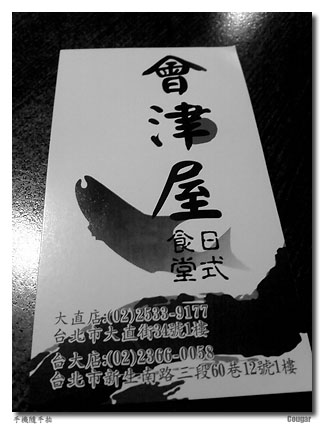 會津屋
日式
食堂
大直店:(02)2533-9177
台北市大直街34號1樓
台大店:(02)2366-0058
台北市新生南路三段60巷12號1樓
手機隨手拍
Cougar